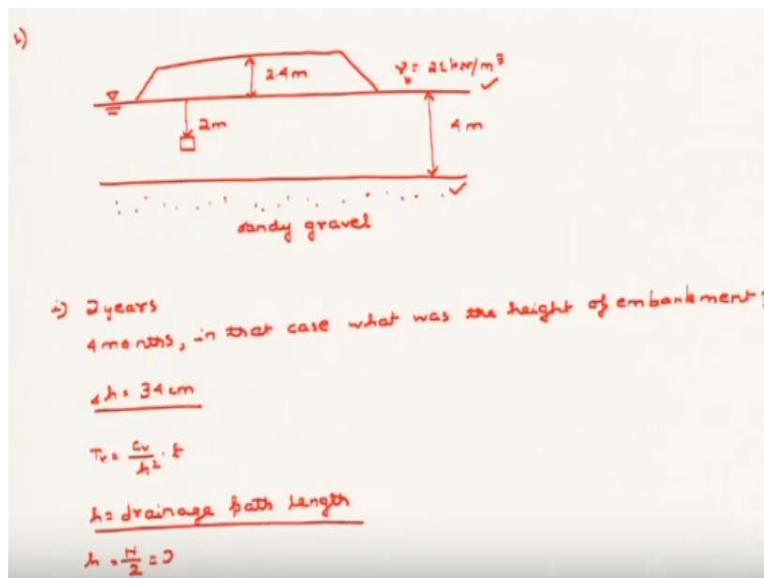 2)
2.4m
γb = 21kN/m³
2m
4 m
sandy gravel
i) 2years
4 months, in that case what was the height of embankment?
Δh = 34 cm
Tv = Cv/h² · t
h= drainage path length
h = H/2 = 2